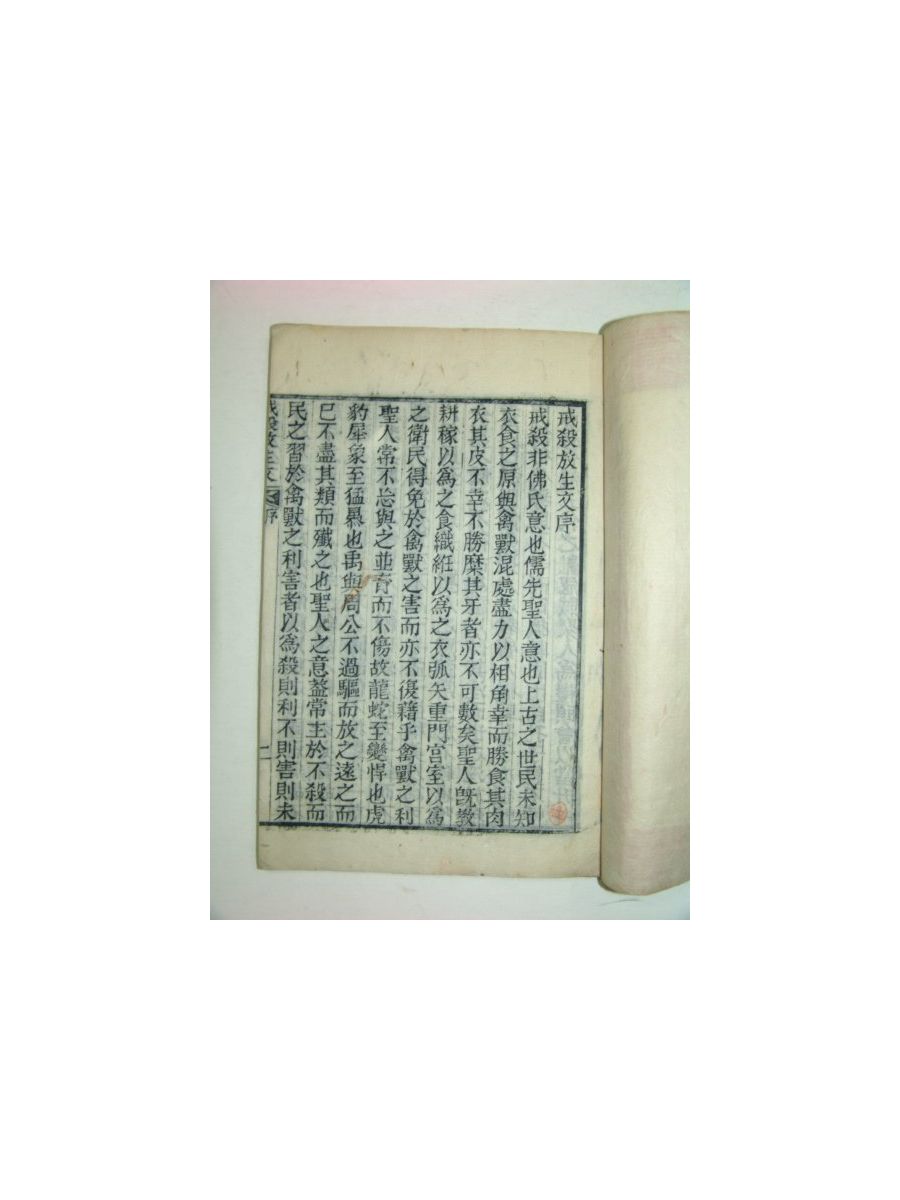 戒殺放生文序
戒殺非佛氏意也儒先聖人意也上古之世民未知
衣食之原與禽獸混處盡力以相角幸而勝食其肉
衣其皮不幸不勝糜其牙者亦不可數矣聖人旣教
耕稼以爲之食織絍以爲之衣弧矢重門宫室以爲
之衛民得免於禽獸之害而亦不復藉乎禽獸之利
聖人常不忿與之並育而不傷故龍蛇至變悍也虎
豹犀象至猛暴也禹與周公不過驅而放之遠之而
已不盡其類而殲之也聖人之意葢常主於不殺而
民之習於禽獸之利害者以爲殺則利不則害則未
戒殺放生文 序 二